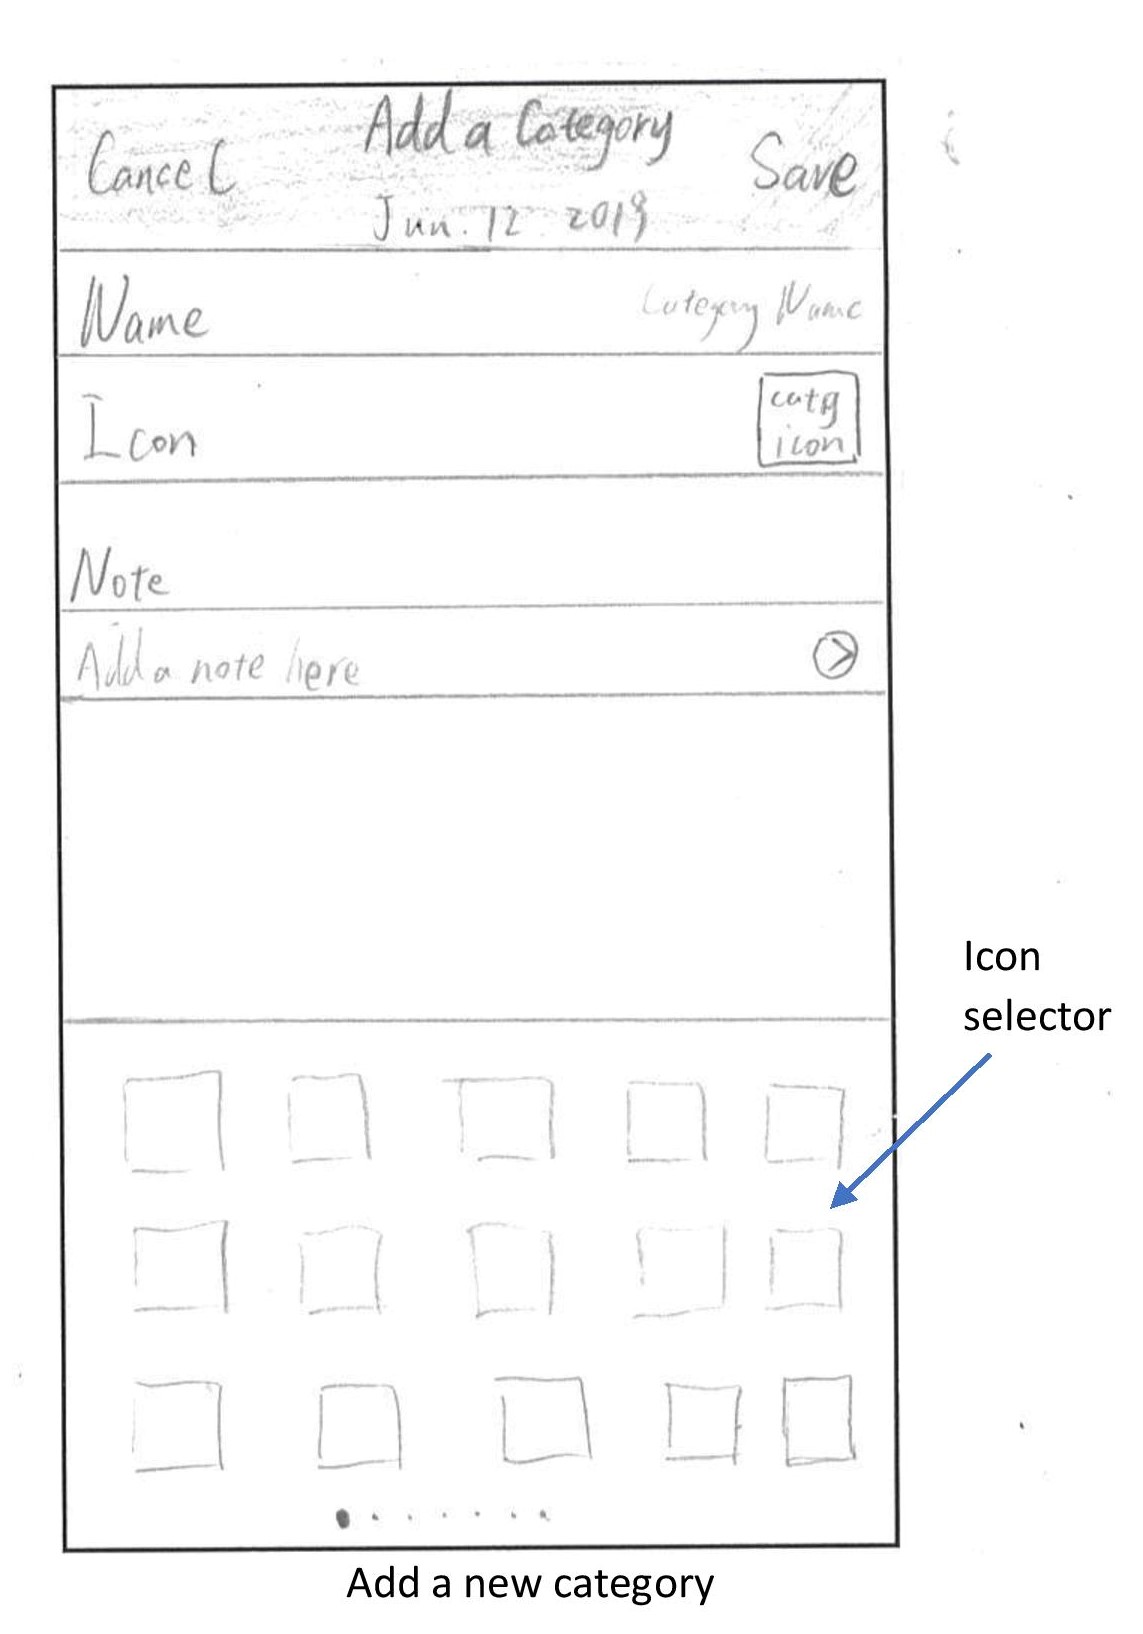 Cancel
Add a Category
Save
Jun. 12 2019
Name
Category Name
Icon
catg
icon
Note
Add a note here
Icon
selector
Add a new category